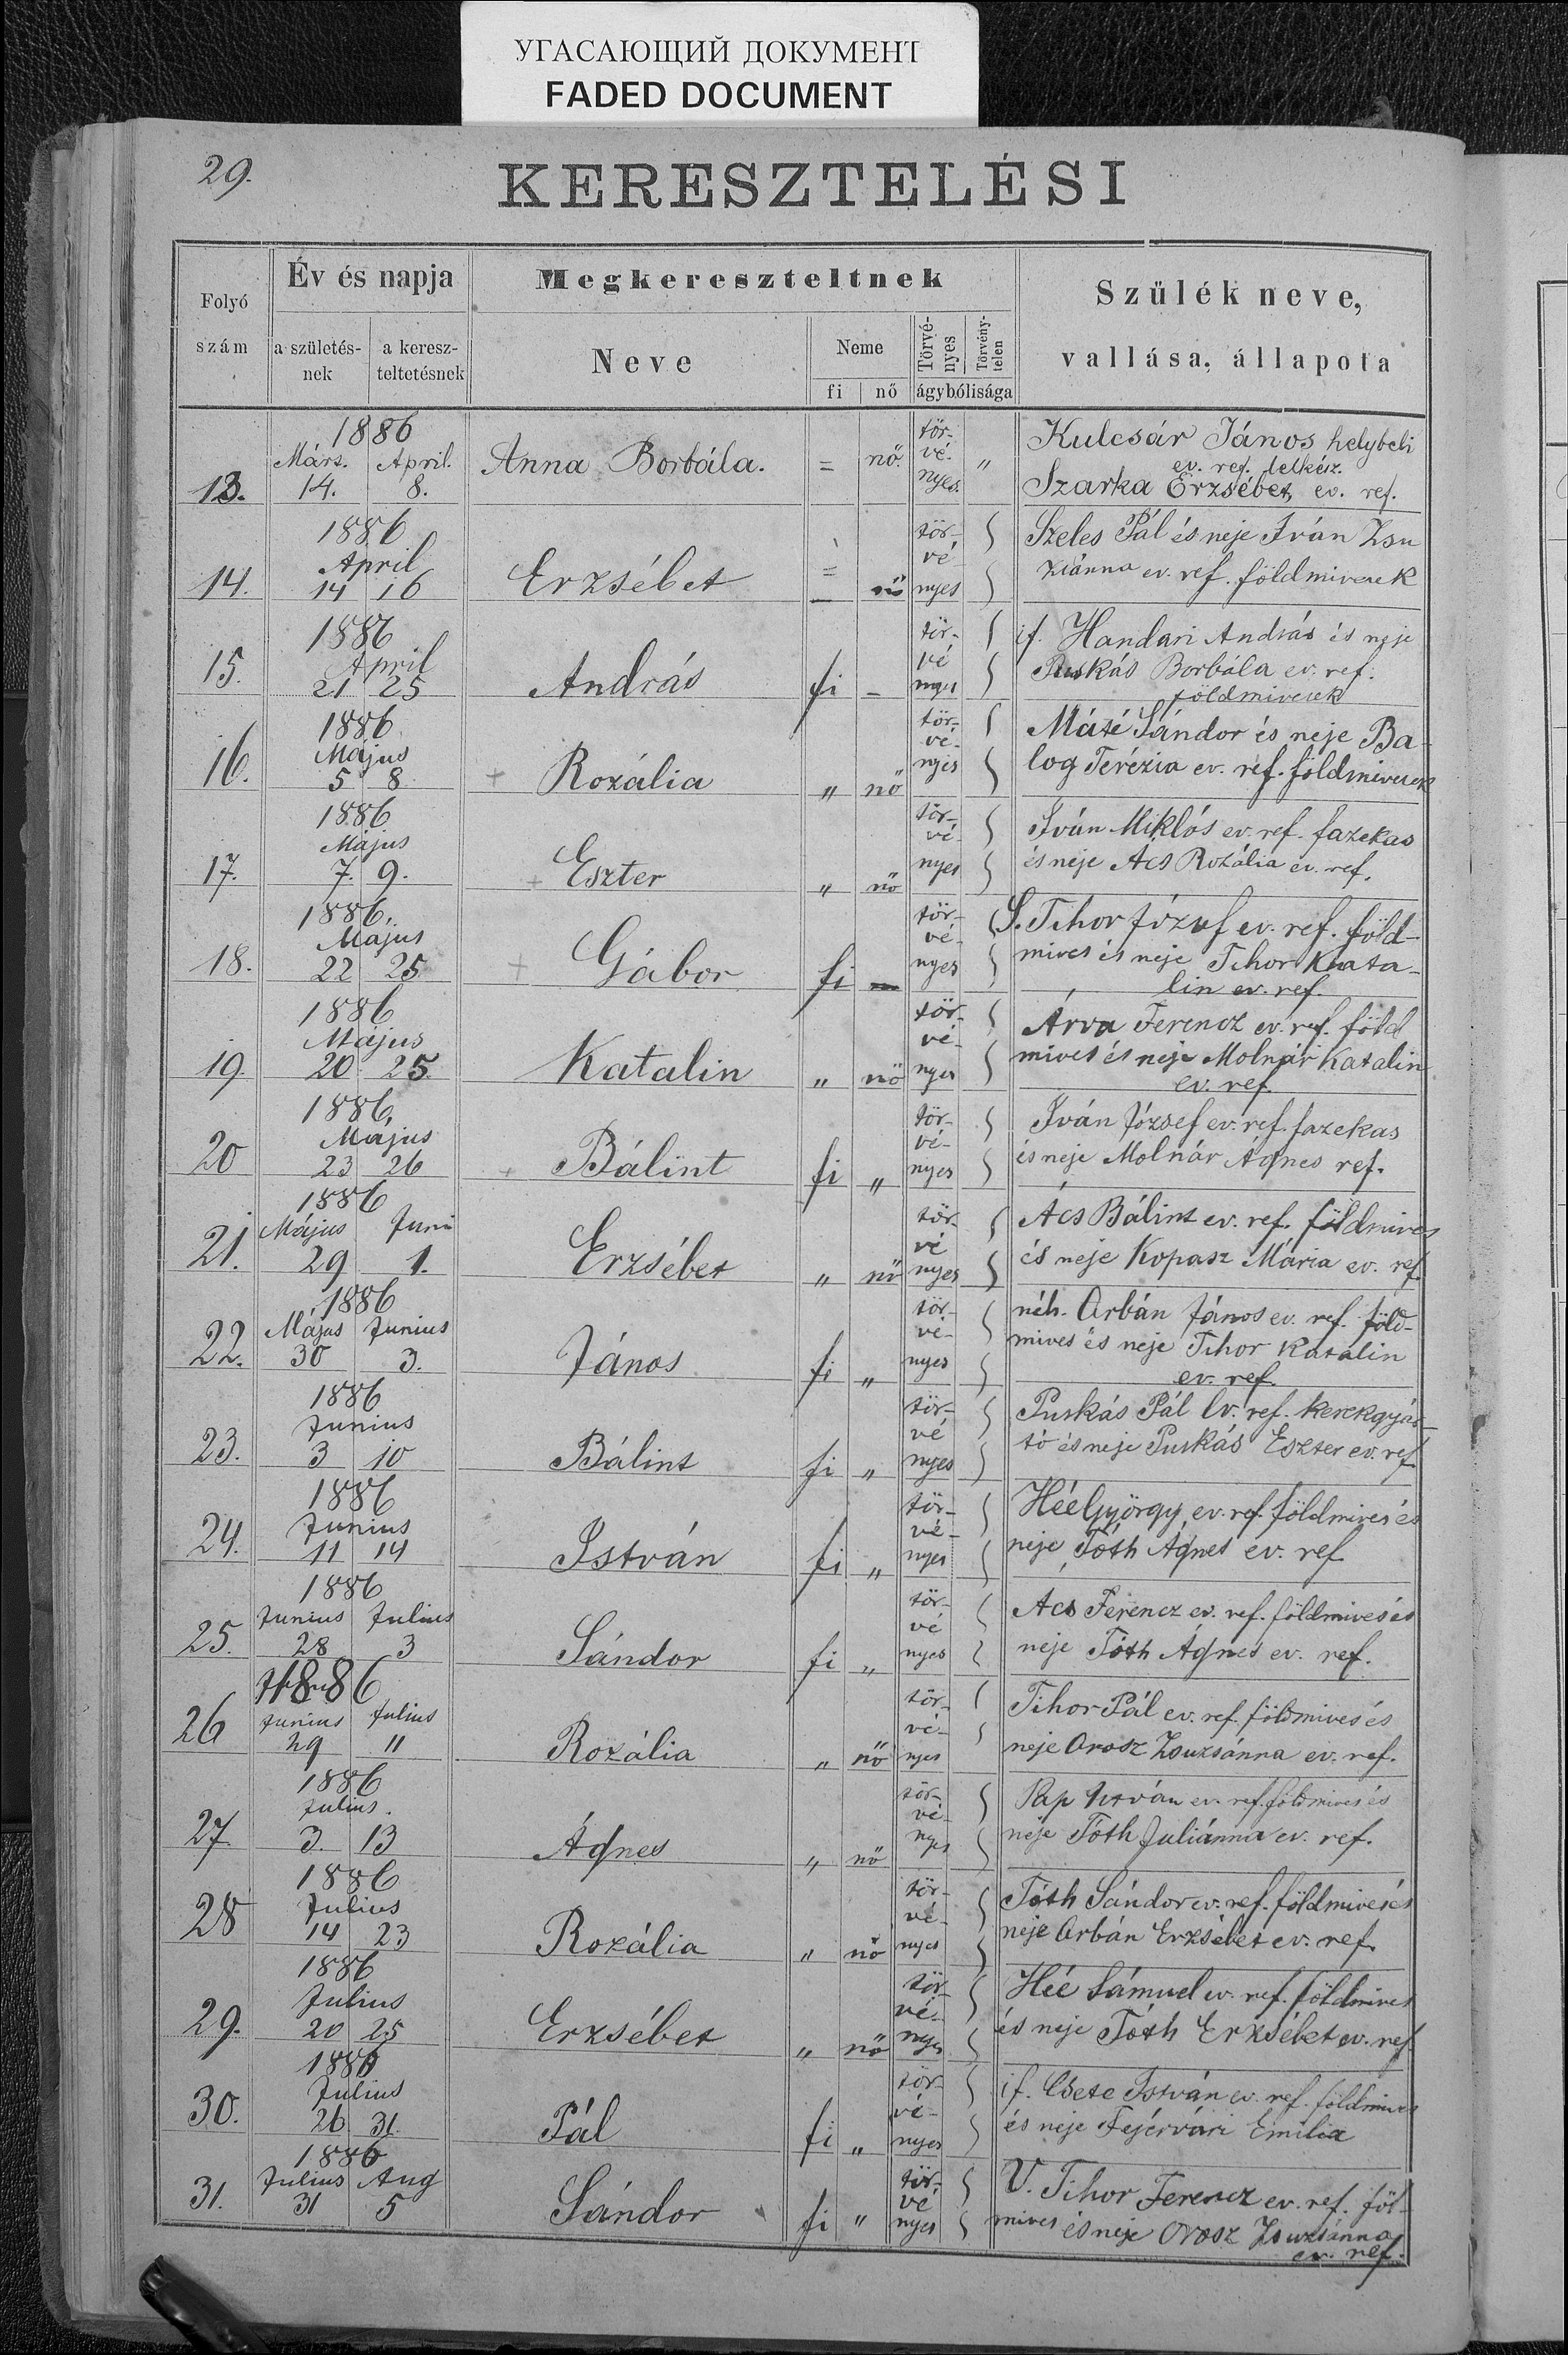 УГАСАЮЩИЙ ДОКУМЕНТ
FADED DOCUMENT
29.
KERESZTELÉSI
Folyó szám
Év és napja
a születés-nek
a keresz-teltetésnek
Megkereszteltnek
Neve
Neme
fi nő
Törvé-nyes
Törvény-telen
ágybólisága
Szülék neve,
vallása, állapota
1886
Márt. April. Anna Borbála. = nő. tör-vé-nyes. " Kulcsár János helybeli
ev. ref. lelkész.
13. 14. 8. Szarka Erzsébet ev. ref.
1886 tör- Szeles Pál és neje Iván Zsu
April vé
14. 14 16 Erzsébet = nő nyes zsánna ev. ref. földmivesek
1886 tör- if. Handari András és neje
15. April vé Puskás Borbála ev. ref.
21 25 András fi - nyes földmivesek
1886 tör- Máté Sándor és neje Ba-
Május vé-
16. 5 8 + Rozália " nő nyes log Terézia ev. ref. földmivesek
1886 tör- Iván Miklós ev. ref. fazekas
Május vé-
17. 7. 9. + Eszter " nő nyes és neje Ács Rozália ev. ref.
1886. tör- S. Tihor József ev. ref. föld-
Május vé- mives és neje Tihor Kata-
18. 22 25 + Gábor fi nyes lin ev. ref.
1886 tör- Árva Ferencz ev. ref. föld
Május vé- mives és neje Molnár Katalin
19. 20 25. Katalin " nő nyes ev. ref.
1886. tör- Iván József ev. ref. fazekas
Május vé-
20 23 26 + Bálint fi " nyes és neje Molnár Ágnes ref.
1886 tör- Ács Bálint ev. ref. földmives
Május Juni vé
21. 29 1. Erzsébet " nő nyes és neje Kopasz Mária ev. ref.
1886 tör- néh. Orbán János ev. ref. föld-
Május Junius vé- mives és neje Tihor Katalin
22. 30 3. János fi " nyes ev. ref.
1886 tör- Puskás Pál ev. ref. kerekgyár-
Junius vé
23. 3 10 Bálint fi " nyes tó és neje Puskás Eszter ev. ref.
1886 tör- Hée György ev. ref. földmives és
Junius vé-
24. 11 14 István fi " nyes neje Tóth Ágnes ev. ref
1886 tör- Acs Ferencz ev. ref. földmives és
Junius Julius vé
25. 28 3 Sándor fi " nyes neje Tóth Ágnes ev. ref.
1886 tör- Tihor Pál ev. ref. földmives és
Junius Julius vé-
26 29 11 Rozália " nő nyes neje Orosz Zsuzsánna ev. ref.
1886 tör- Pap István ev. ref. földmives és
Julius. vé-
27 3. 13 Ágnes " nő nyes neje Tóth Juliánna ev. ref.
1886 tör- Tóth Sándor ev. ref. földmives és
Julius vé-
28 14 23 Rozália " nő nyes neje Orbán Erzsébet ev. ref.
1886 tör- Hée Sámuel ev. ref. földmives
Julius vé-
29. 20 25 Erzsébet " nő nyes és neje Tóth Erzsébet ev. ref.
1886 tör- if. Csete István ev. ref. földmives
Julius vé-
30. 26 31. Pál fi " nyes és neje Fejérvári Emilia
1886 tör- V. Tihor Ferencz ev. ref. föl-
Julius Aug vé mives és neje Orosz Zsuzsánna
31. 31 5 Sándor fi " nyes ev. ref.